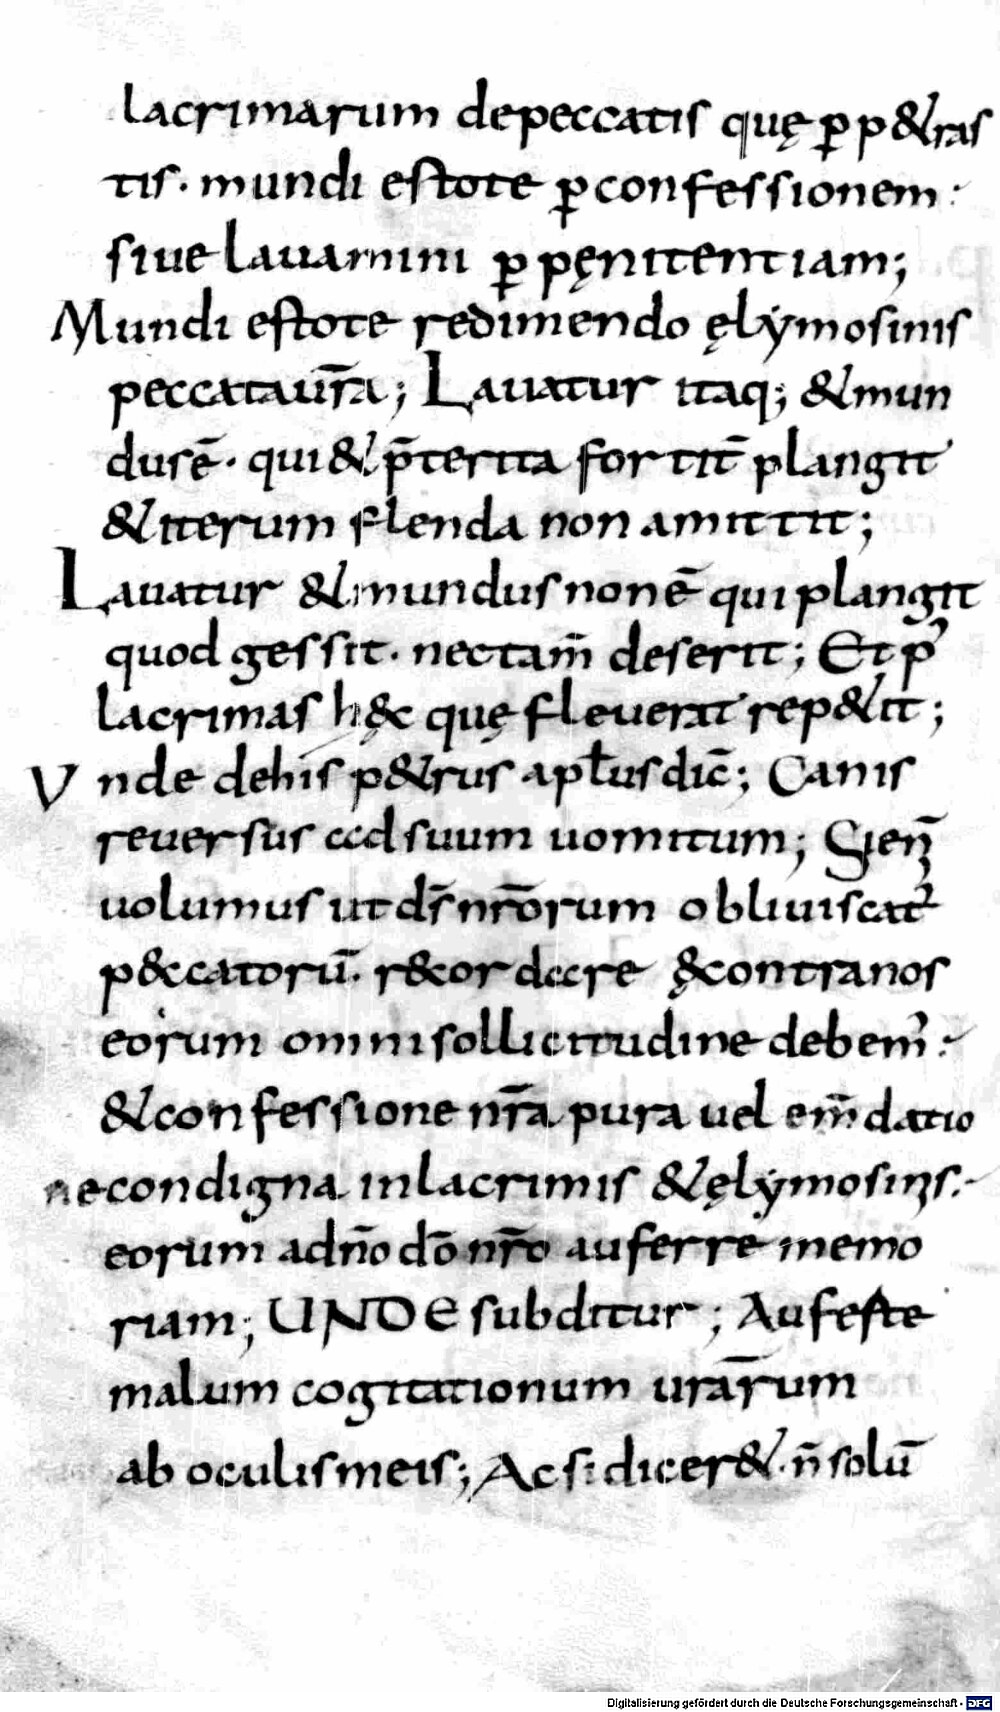 lacrimarum depeccatis quę ꝑp&ras
tis. mundi estote ꝑconfessionem:
siue lauamini ꝑ pęnitentiam;
Mundi estote redimendo ęlẏmosinis
peccataur̄a; Lauatur itaq; &mun
dusē. qui & p̄terita fortit̄ plangit
& iterum flenda non amittit;
Lauatur & mundus nonē qui plangit
quod gessit. nectam̄ deserit; Et pꝰ
lacrimas hęc quę fleuerat rep&it;
Vnde dehis p&rus aptłus dic̄; Canis
reuersus ad suum uomitum;
uolumus ut dn̄s nr̄orum obliuiscat᷑
p&catorū. r&cordare ęcontranos
eorum omni sollicitudine debemꝰ:
& confessione nr̄a pura uel em̄datio
ne condigna inlacrimis & ęlẏmosinis.
eorum adn̄o dō nr̄o auferre memo
riam; UNDE subditur; Auferte
malum cogitationum urār̄um
ab oculis meis; Ac si dicer&. n̄ solū
Digitalisierung gefördert durch die Deutsche Forschungsgemeinschaft - DFG